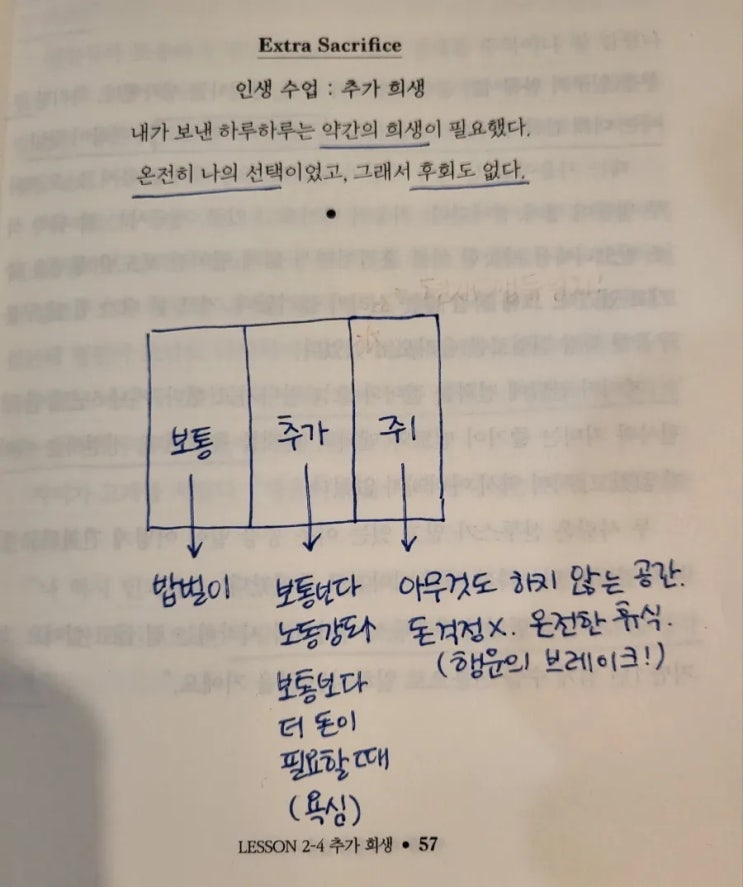 Extra Sacrifice
인생 수업 : 추가 희생
내가 보낸 하루하루는 약간의 희생이 필요했다.
온전히 나의 선택이었고, 그래서 후회도 없다.
보통 추가 주1
밥벌이
보통보다
노동강도↑
보통보다
더 돈이
필요할 때
(욕심)
아무것도 하지 않는 공간.
돈걱정X. 온전한 휴식.
(행운의 브레이크!)
LESSON 2-4 추가 희생 • 57